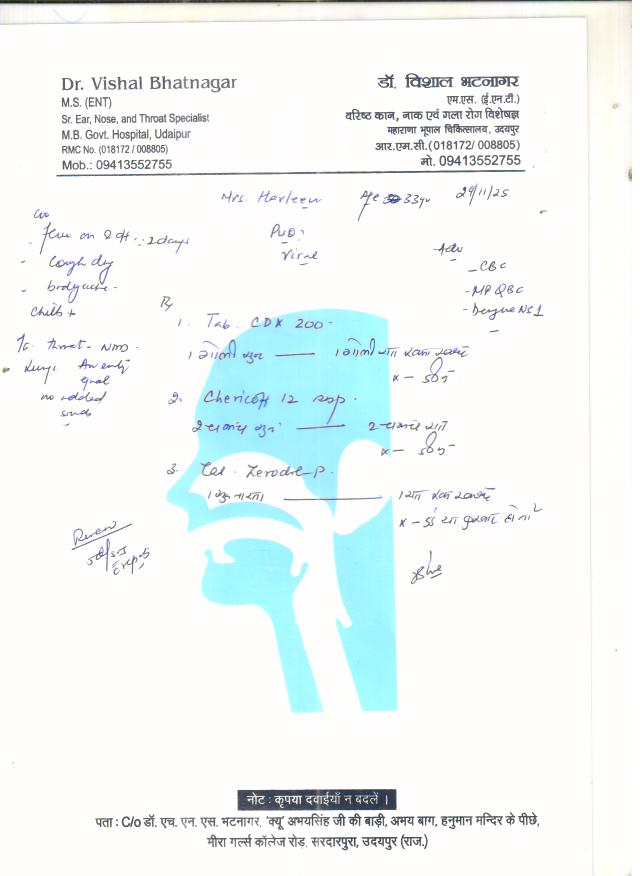 Dr. Vishal Bhatnagar
M.S. (ENT)
Sr. Ear, Nose, and Throat Specialist
M.B. Govt. Hospital, Udaipur
RMC No. (018172 / 008805)
Mob.: 09413552755
डॉ. विशाल भटनागर
एम.एस. (ई.एन.टी.)
वरिष्ठ कान, नाक एवं गला रोग विशेषज्ञ
महाराणा भूपाल चिकित्सालय, उदयपुर
आर.एम.सी.(018172/ 008805)
मो. 09413552755
Mrs. Harleen Age 33yr 29/11/25
c/o
Fever on & off 2 days
- Cough dry
- bodyache -
Chills +
throat - NAD -
Lungs
equal
no added
PVD?
Viral
Adv
- CBC
- MP QBC
- Dengue NS1
Rx
1. Tab. CDX 200 -
1 गोली सुबह 1 गोली
2. Chericoff 12 syp.
2 चम्मच सुबह 2 चम्मच
3. Zerodol-P.
Review
नोट : कृपया दवाईयाँ न बदलें ।
पता : C/o डॉ. एच. एन. एस. भटनागर, 'क्यू' अभयसिंह जी की बाड़ी, अभय बाग, हनुमान मन्दिर के पीछे,
मीरा गर्ल्स कॉलेज रोड़, सरदारपुरा, उदयपुर (राज.)